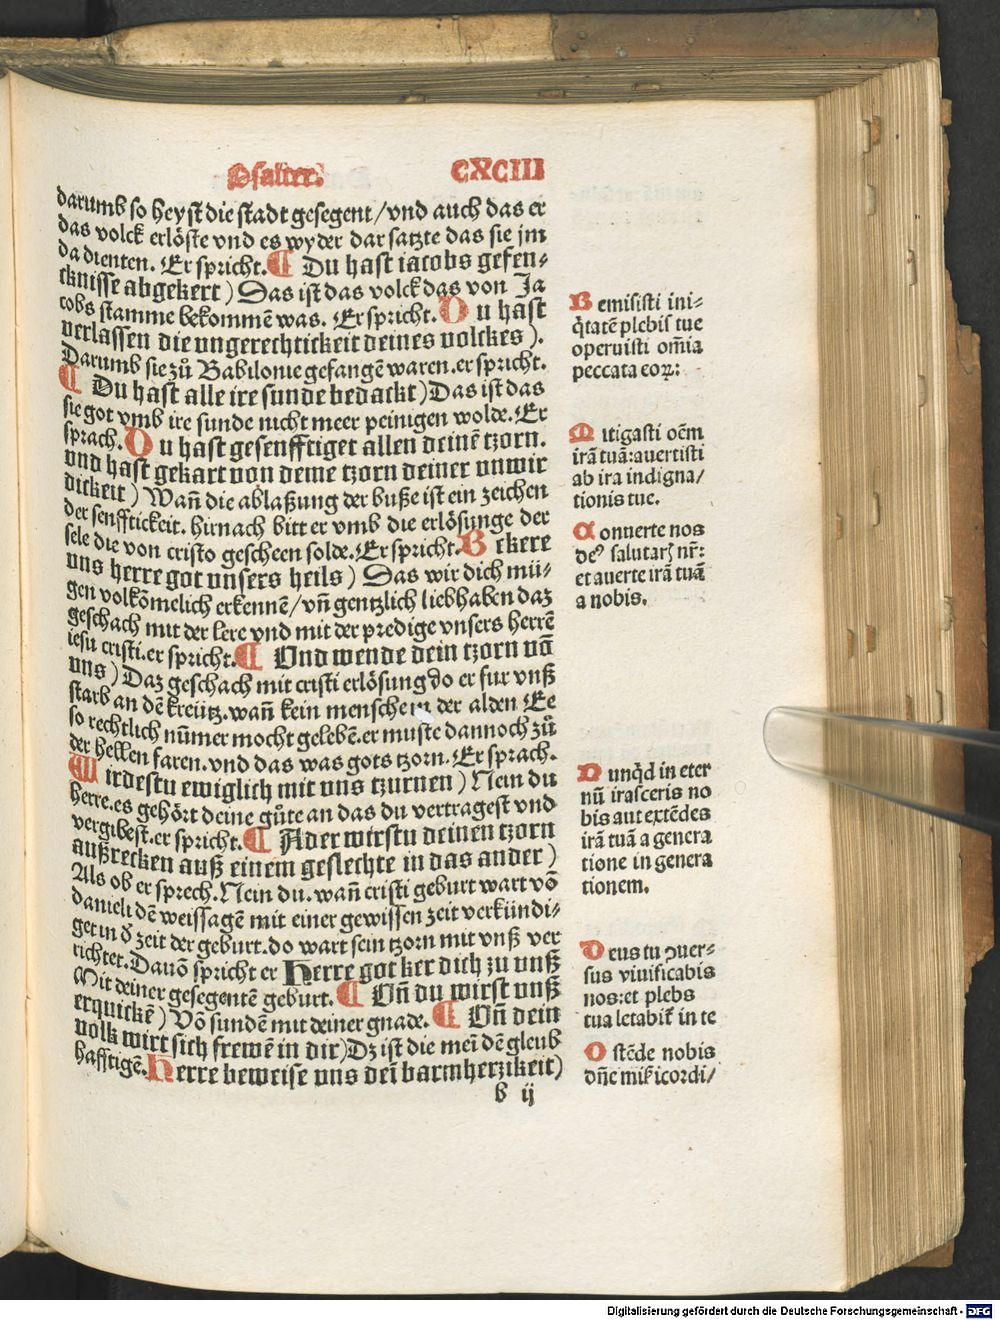 Psalter. CXCIII
darumb so heyst die stadt gesegent/vnd auch das er
das volck erlöste vnd es wyder dar satzte das sie jm
da dienten. Er spricht. ¶ Du hast iacobs gefen-
cknisse abgekert) Das ist das volck das von Ja
cobs stamme bekommē was. Er spricht. Du hast
verlassen die vngerechtickeit deines volckes).
Darumb sie zů Babilonie gefangē waren. er spricht.
¶ Du hast alle ire sunde bedackt) Das ist das
sie got vmb ire sunde nicht meer peinigen wolde. Er
sprach. Du hast gesenfftiget allen deinē tzorn.
vnd hast gekart von deme tzorn deiner vnwir
dickeit) Wañ die ablaßung der buße ist ein zeichen
der senfftickeit. hirnach bitt er vmb die erlösunge der
sele die von cristo gescheen solde. Er spricht. Bekere
vns herre got vnsers heils) Das wir dich mü-
gen volkōmelich erkennē/vñ gentzlich liebhaben daz
geschach mit der lere vnd mit der predige vnsers herrē
iesu cristi. er spricht. ¶ Vnd wende dein tzorn vō
vns) Daz geschach mit cristi erlösung do er fur vnß
starb an dē kreütz. wañ kein mensche in der alden Ee
so rechtlich nūmer mocht gelebē. er muste dannoch zů
der hellen faren. vnd das was gots tzorn. Er sprach.
Wirdestu ewiglich mit vns tzurnen) Nein du
herre. es gehört deine gůte an das du vertragest vnd
vergibest. er spricht. ¶ Ader wirstu deinen tzorn
außrecken auß einem geslechte in das ander)
Als ob er sprech. Nein du. wañ cristi geburt wart vō
danieli dē weissagē mit einer gewissen zeit verkündi-
get in d̕ zeit der geburt. do wart sein tzorn mit vnß ver
richtet. Dauō spricht er Herre got ker dich zu vnß
Mit deiner gesegentē geburt. ¶ Vñ du wirst vnß
erquickē) Vō sundē mit deiner gnade. ¶ Vñ dein
volk wirt sich frewē in dir) Dz ist die mei dē gleub
hafftigē. Herre beweise vns dei barmherzikeit)
b ij
Remisisti ini-
q̄tatē plebis tue
operuisti om̄ia
peccata eoꝝ:
Mitigasti oēm
irā tuā: auertisti
ab ira indigna/
tionis tue.
Conuerte nos
deꝰ salutarꝭ nr̄:
et auerte irā tuā
a nobis.
Nunq̄d in eter
nū irasceris no
bis aut extēdes
irā tuā a genera
tione in genera
tionem.
Deus tu ꝯuer-
sus viuificabis
nos: et plebs
tua letabit̄ in te
Ostēde nobis
dn̄e mis̄icordi/
Digitalisierung gefördert durch die Deutsche Forschungsgemeinschaft - DFG